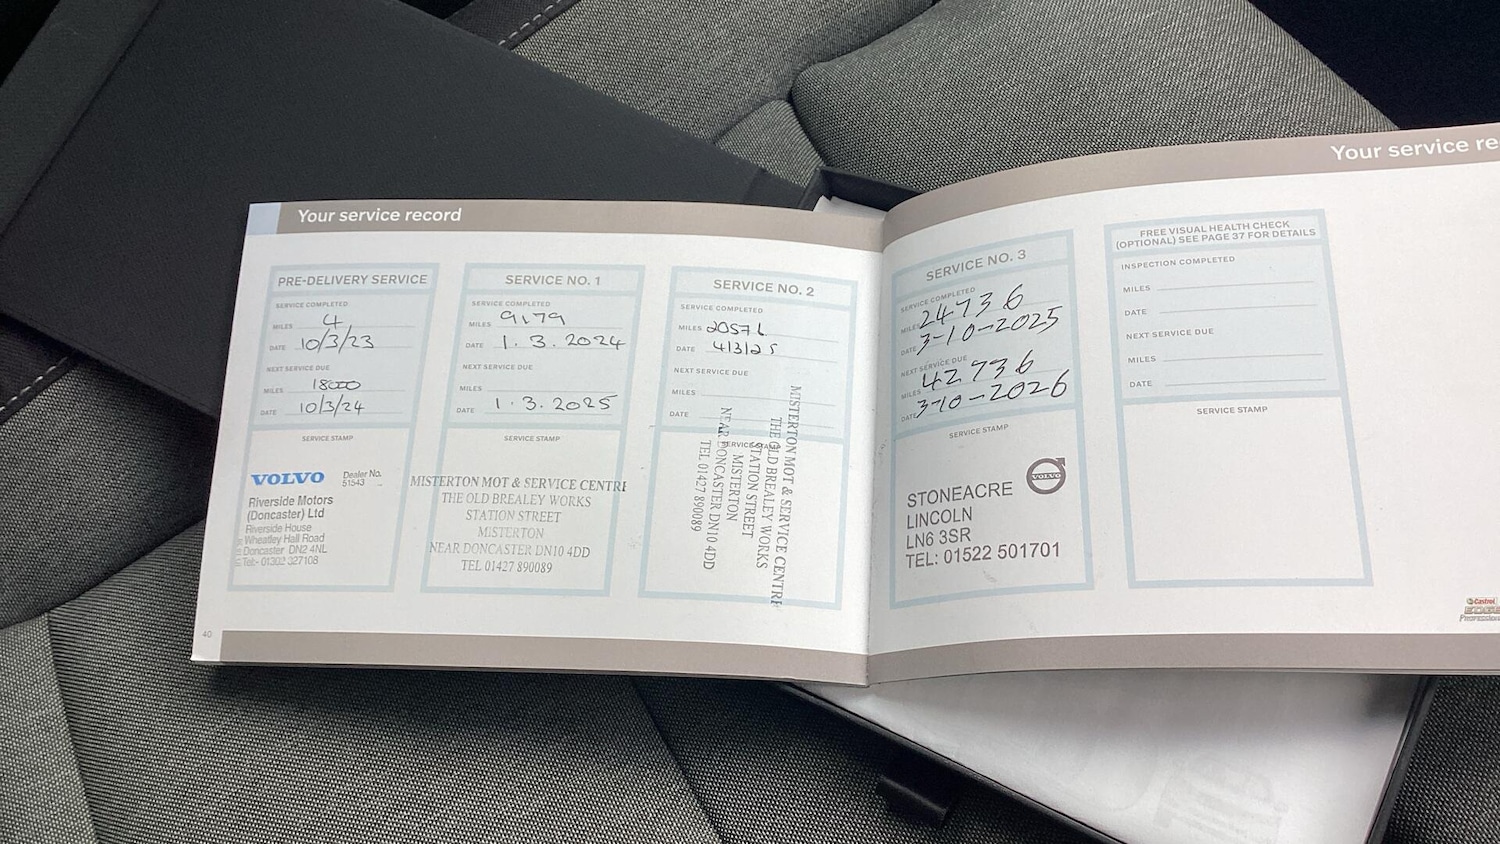 Your service record
PRE-DELIVERY SERVICE
SERVICE COMPLETED
MILES 4
DATE 10/3/23
NEXT SERVICE DUE
MILES 18000
DATE 10/3/24
SERVICE STAMP
VOLVO
Dealer No.
51543
Riverside Motors
(Doncaster) Ltd
Riverside House
Wheatley Hall Road
Doncaster DN2 4NL
Tel:- 01302 327108
40
SERVICE NO. 1
SERVICE COMPLETED
MILES 9179
DATE 1.3.2024
NEXT SERVICE DUE
MILES
DATE 1.3.2025
SERVICE STAMP
MISTERTON MOT & SERVICE CENTRE
THE OLD BREALEY WORKS
STATION STREET
MISTERTON
NEAR DONCASTER DN10 4DD
TEL 01427 890089
SERVICE NO. 2
SERVICE COMPLETED
MILES 20576
DATE 4/3/25
NEXT SERVICE DUE
MILES
DATE
SERVICE STAMP
MISTERTON MOT & SERVICE CENTRE
THE OLD BREALEY WORKS
STATION STREET
MISTERTON
NEAR DONCASTER DN10 4DD
TEL 01427 890089
Your service re
SERVICE NO. 3
SERVICE COMPLETED
MILES 24736
DATE 3-10-2025
NEXT SERVICE DUE
MILES 42736
DATE 3-10-2026
SERVICE STAMP
VOLVO
STONEACRE
LINCOLN
LN6 3SR
TEL: 01522 501701
FREE VISUAL HEALTH CHECK
(OPTIONAL) SEE PAGE 37 FOR DETAILS
INSPECTION COMPLETED
MILES
DATE
NEXT SERVICE DUE
MILES
DATE
SERVICE STAMP
Castrol
EDGE
Professional